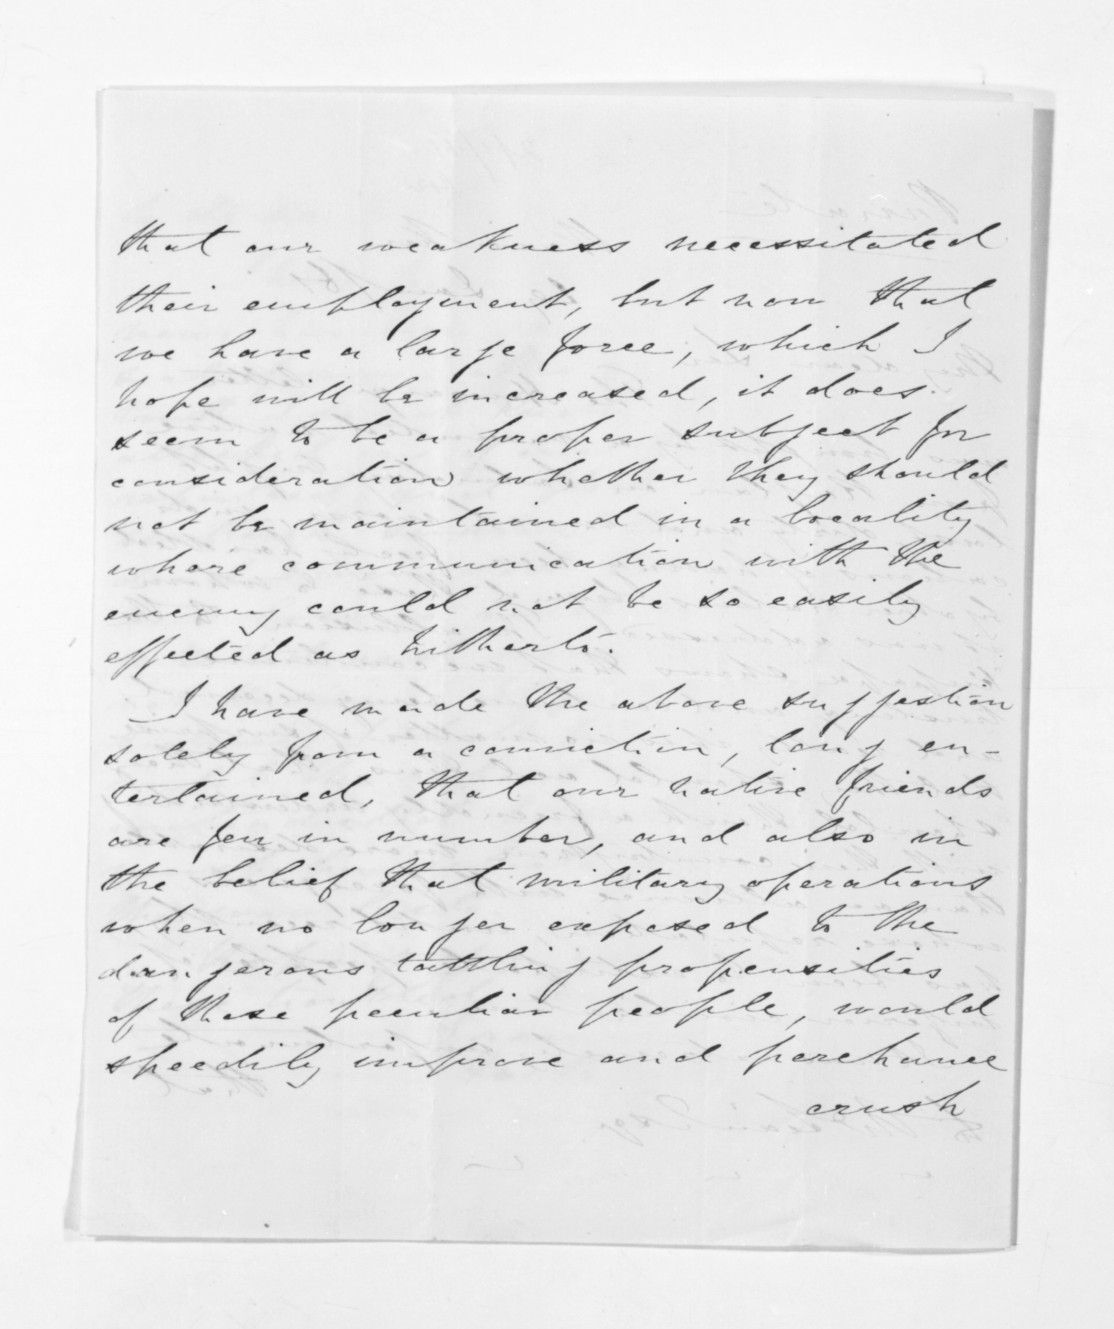 that our weakness necessitated
their employment, but now that
we have a large force, which I
hope will be increased, it does.
seem to be a proper subject for
consideration whether they should
not be maintained in a locality
where communication with the
enemy could not be so easily
effected as hitherto.
I have made the above suggestion
solely from a conviction, long en-
tertained, that our native friends
are few in number, and also in
the belief that military operations
when no longer exposed to the
dangerous tattling propensities
of these peculiar people, would
speedily improve and perchance
crush